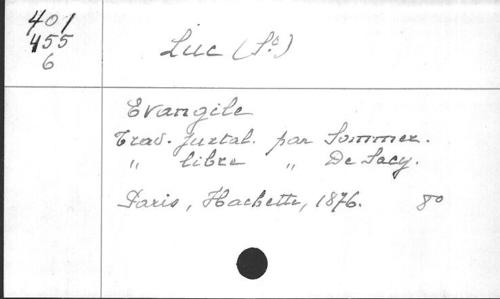 401
455
6
Luc (St)
Evangile
Trad. juxtal. par Sommer.
" libre " De Sacy.
Paris, Hachette, 1876. 8o